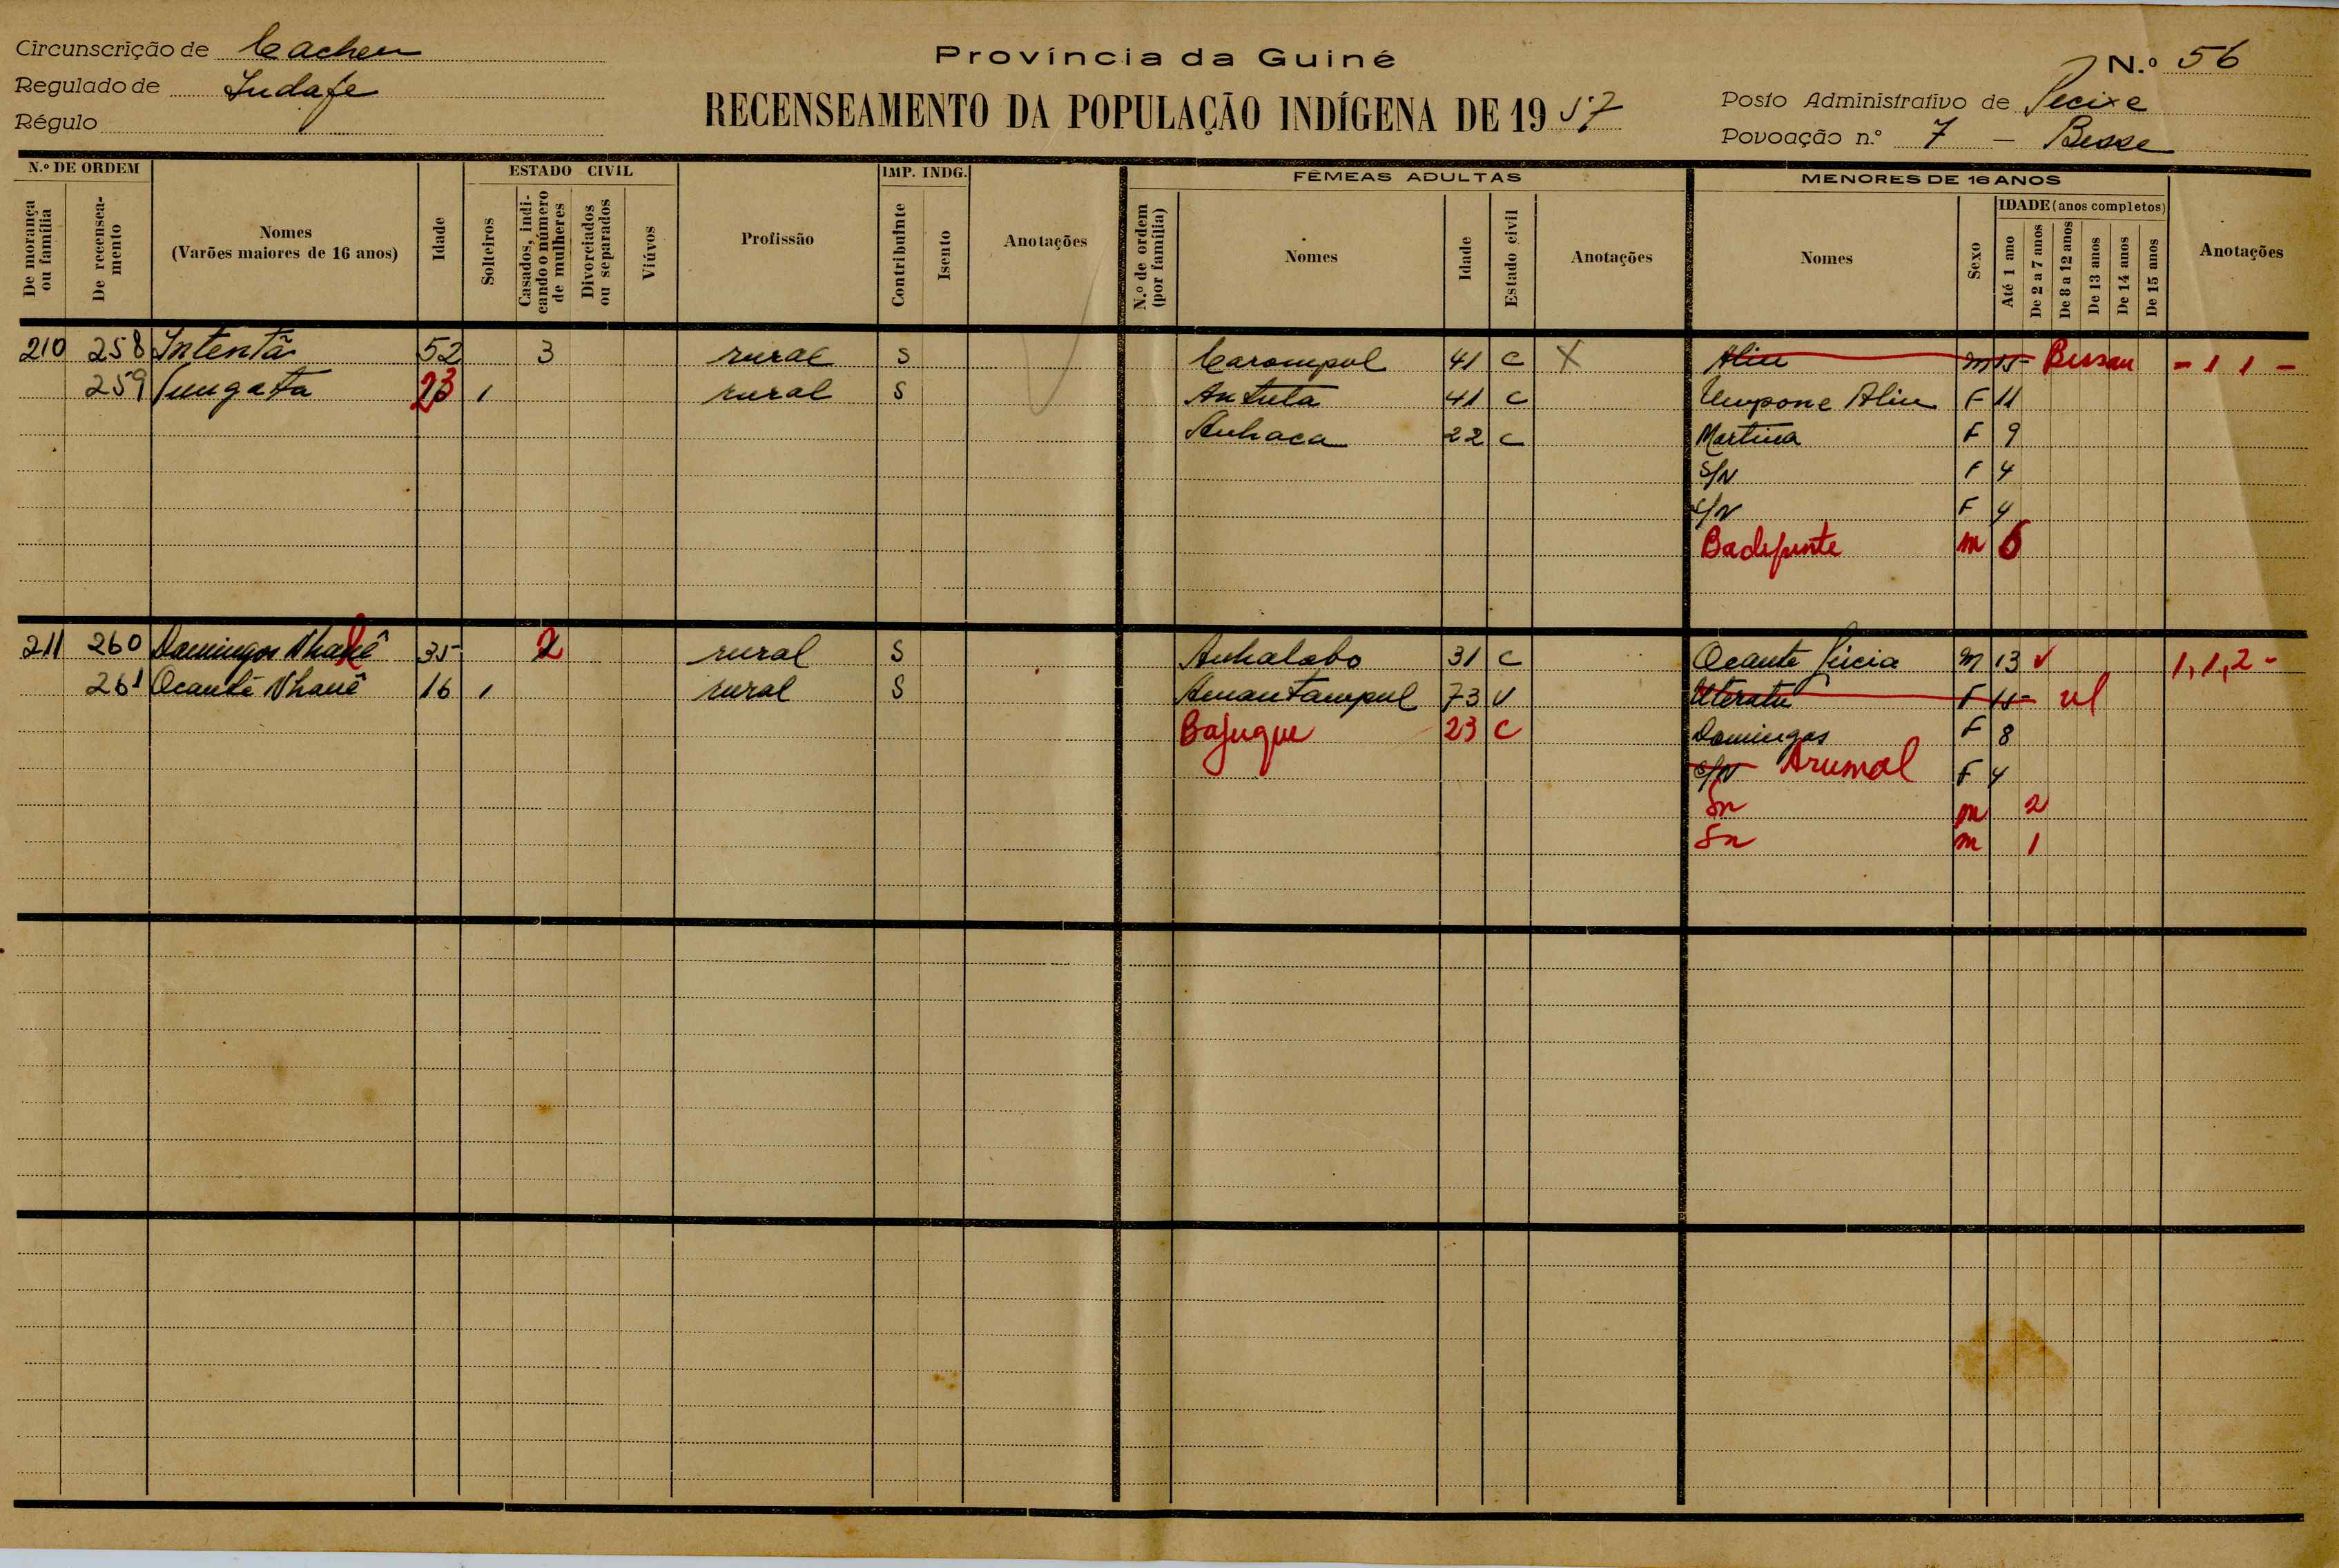 Circunscrição de Cacheu
Regulado de Indafe
Régulo
Província da Guiné
RECENSEAMENTO DA POPULAÇÃO INDÍGENA DE 1957
N.º 56
Posto Administrativo de Pecixe
Povoação n.º 7 — Besse
N.º DE ORDEM ESTADO CIVIL IMP. INDG. FÊMEAS ADULTAS MENORES DE 16 ANOS
De morança ou família
De recenseamento
Nomes
(Varões maiores de 16 anos)
Idade
Solteiros
Casados, indicando o número de mulheres
Divorciados ou separados
Viúvos
Profissão
Contribuinte
Isento
Anotações
N.º de ordem (por família)
Nomes
Idade
Estado civil
Anotações
Nomes
Sexo
IDADE (anos completos)
Até 1 ano
De 2 a 7 anos
De 8 a 12 anos
De 13 anos
De 14 anos
De 15 anos
Anotações
210 258 Intentã 52 3 rural S Carompol 41 C X Aliu M 15 Bissau - 1 1 -
259 Cungata 23 1 rural S Antuta 41 C Umpone Aliu F 11
Anhaca 22 C Martina F 9
S/N F 4
S/N F 4
Badepinte m 6
211 260 Domingos 35 2 rural S Anhalabo 31 C Ocante M 13 1, 1, 2 -
261 Ocante Nhanê 16 1 rural S Amantampul 73 V Uteratu F 15 vl
Bajuque 23 C Domingas F 8
S/N Arumal F 4
Sn m 2
Sn m 1